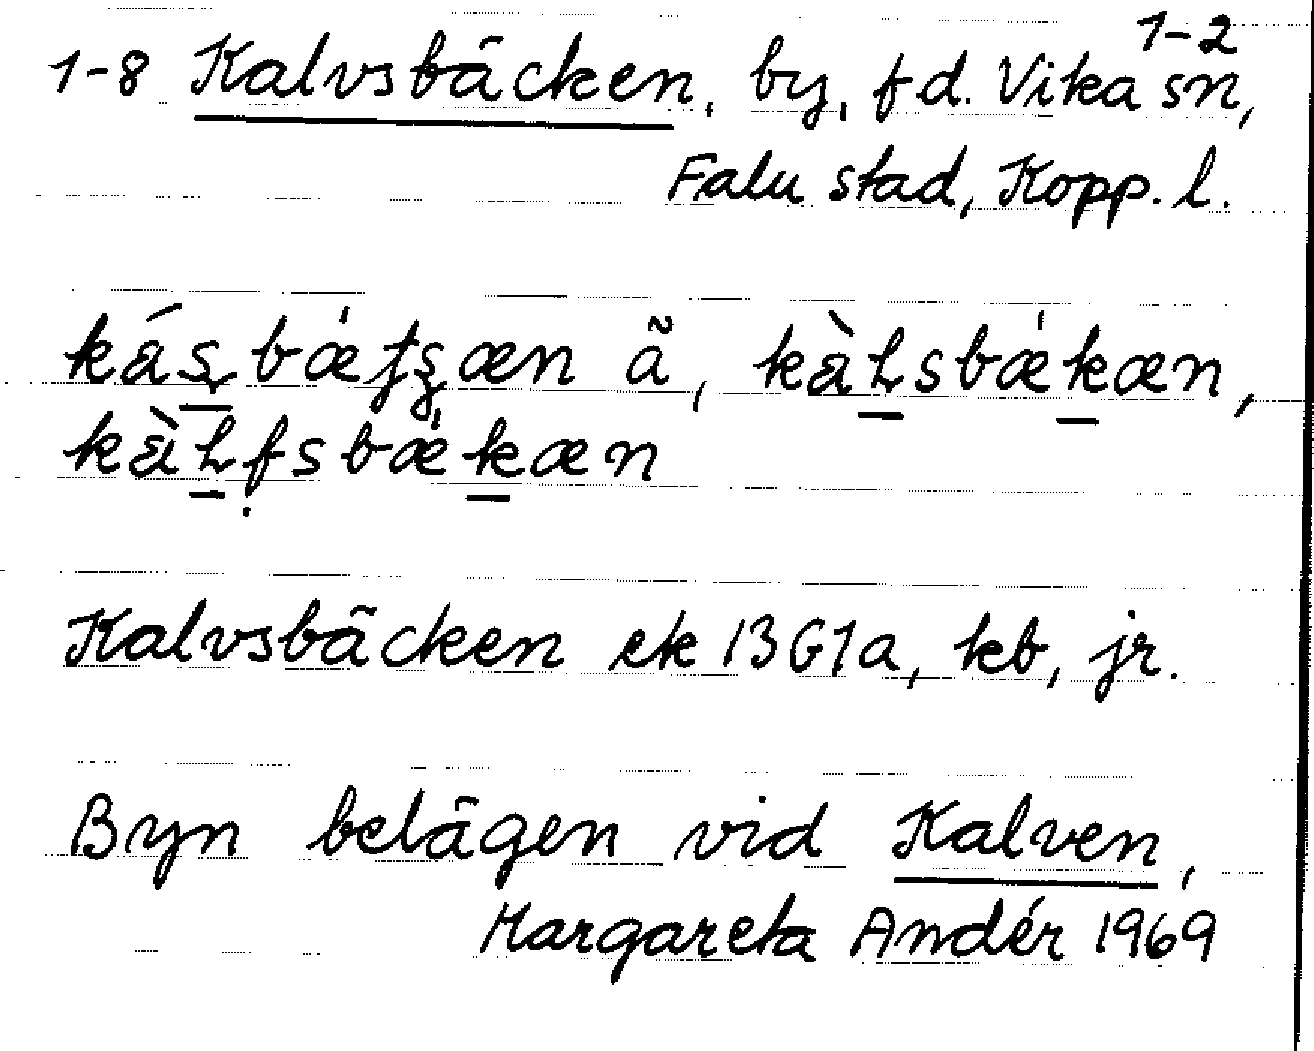 1-2
1-8 Kalvsbäcken, by, f d. Vika sn,
Falu stad, Kopp. l.
Kalvsbäcken ek 13G1a, kb, jr.
Byn belägen vid Kalven,
Margareta Andér 1969